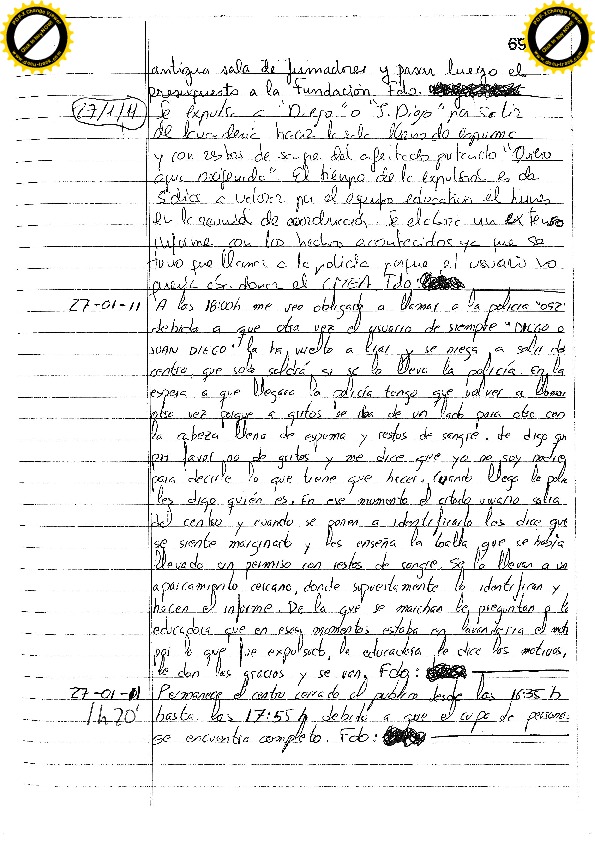 65
antigua sala de fumadores y pasar luego el
presupuesto a la Fundación. Fdo.
27/1/11 Se expulsa a "Diego" o "J. Diego" por salir
de lavandería hacia la sala lleno de espuma
y con restos de sangre del afeitado gritando "Quiero
agua oxigenada". El tiempo de la expulsión es de
5 días a valorar por el equipo educativo el lunes
en la reunión de coordinación. Se elabora un extenso
informe con los hechos acontecidos ya que se
tuvo que llamar a la policía porque el usuario no
quería abandonar el CMEA. Fdo:
27-01-11 A las 18:00h me veo obligada a llamar a la policía "092"
debido a que otra vez el usuario de siempre "DIEGO o
JUAN DIEGO" la ha vuelto a liar y se niega a salir del
centro, que solo saldrá si se lo lleva la policía. En la
espera a que llegara la policía tengo que volver a llamar
otra vez porque a gritos se iba de un lado para otro con
la cabeza llena de espuma y restos de sangre. Le digo que
por favor no de gritos y me dice que yo no soy nadie
para decirle lo que tiene que hacer. Cuando llega la poli
les digo quién es. En ese momento el citado usuario salía
del centro y cuando se ponen a identificarlo les dice que
se siente marginado y les enseña la toalla que se había
llevado sin permiso con restos de sangre. Se lo llevan a un
aparcamiento cercano, donde supuestamente lo identifican y
hacen el informe. De la que se marchan le preguntan a la
educadora que en esos momentos estaba en lavandería el moti
por lo que fue expulsado, la educadora le dice los motivos,
le dan las gracias y se van. Fdo:
27-01-11 Permanece el centro cerrado al público desde las 16:35 h
1h 20' hasta las 17:55 h debido a que el cupo de personas
se encuentra completo. Fdo: